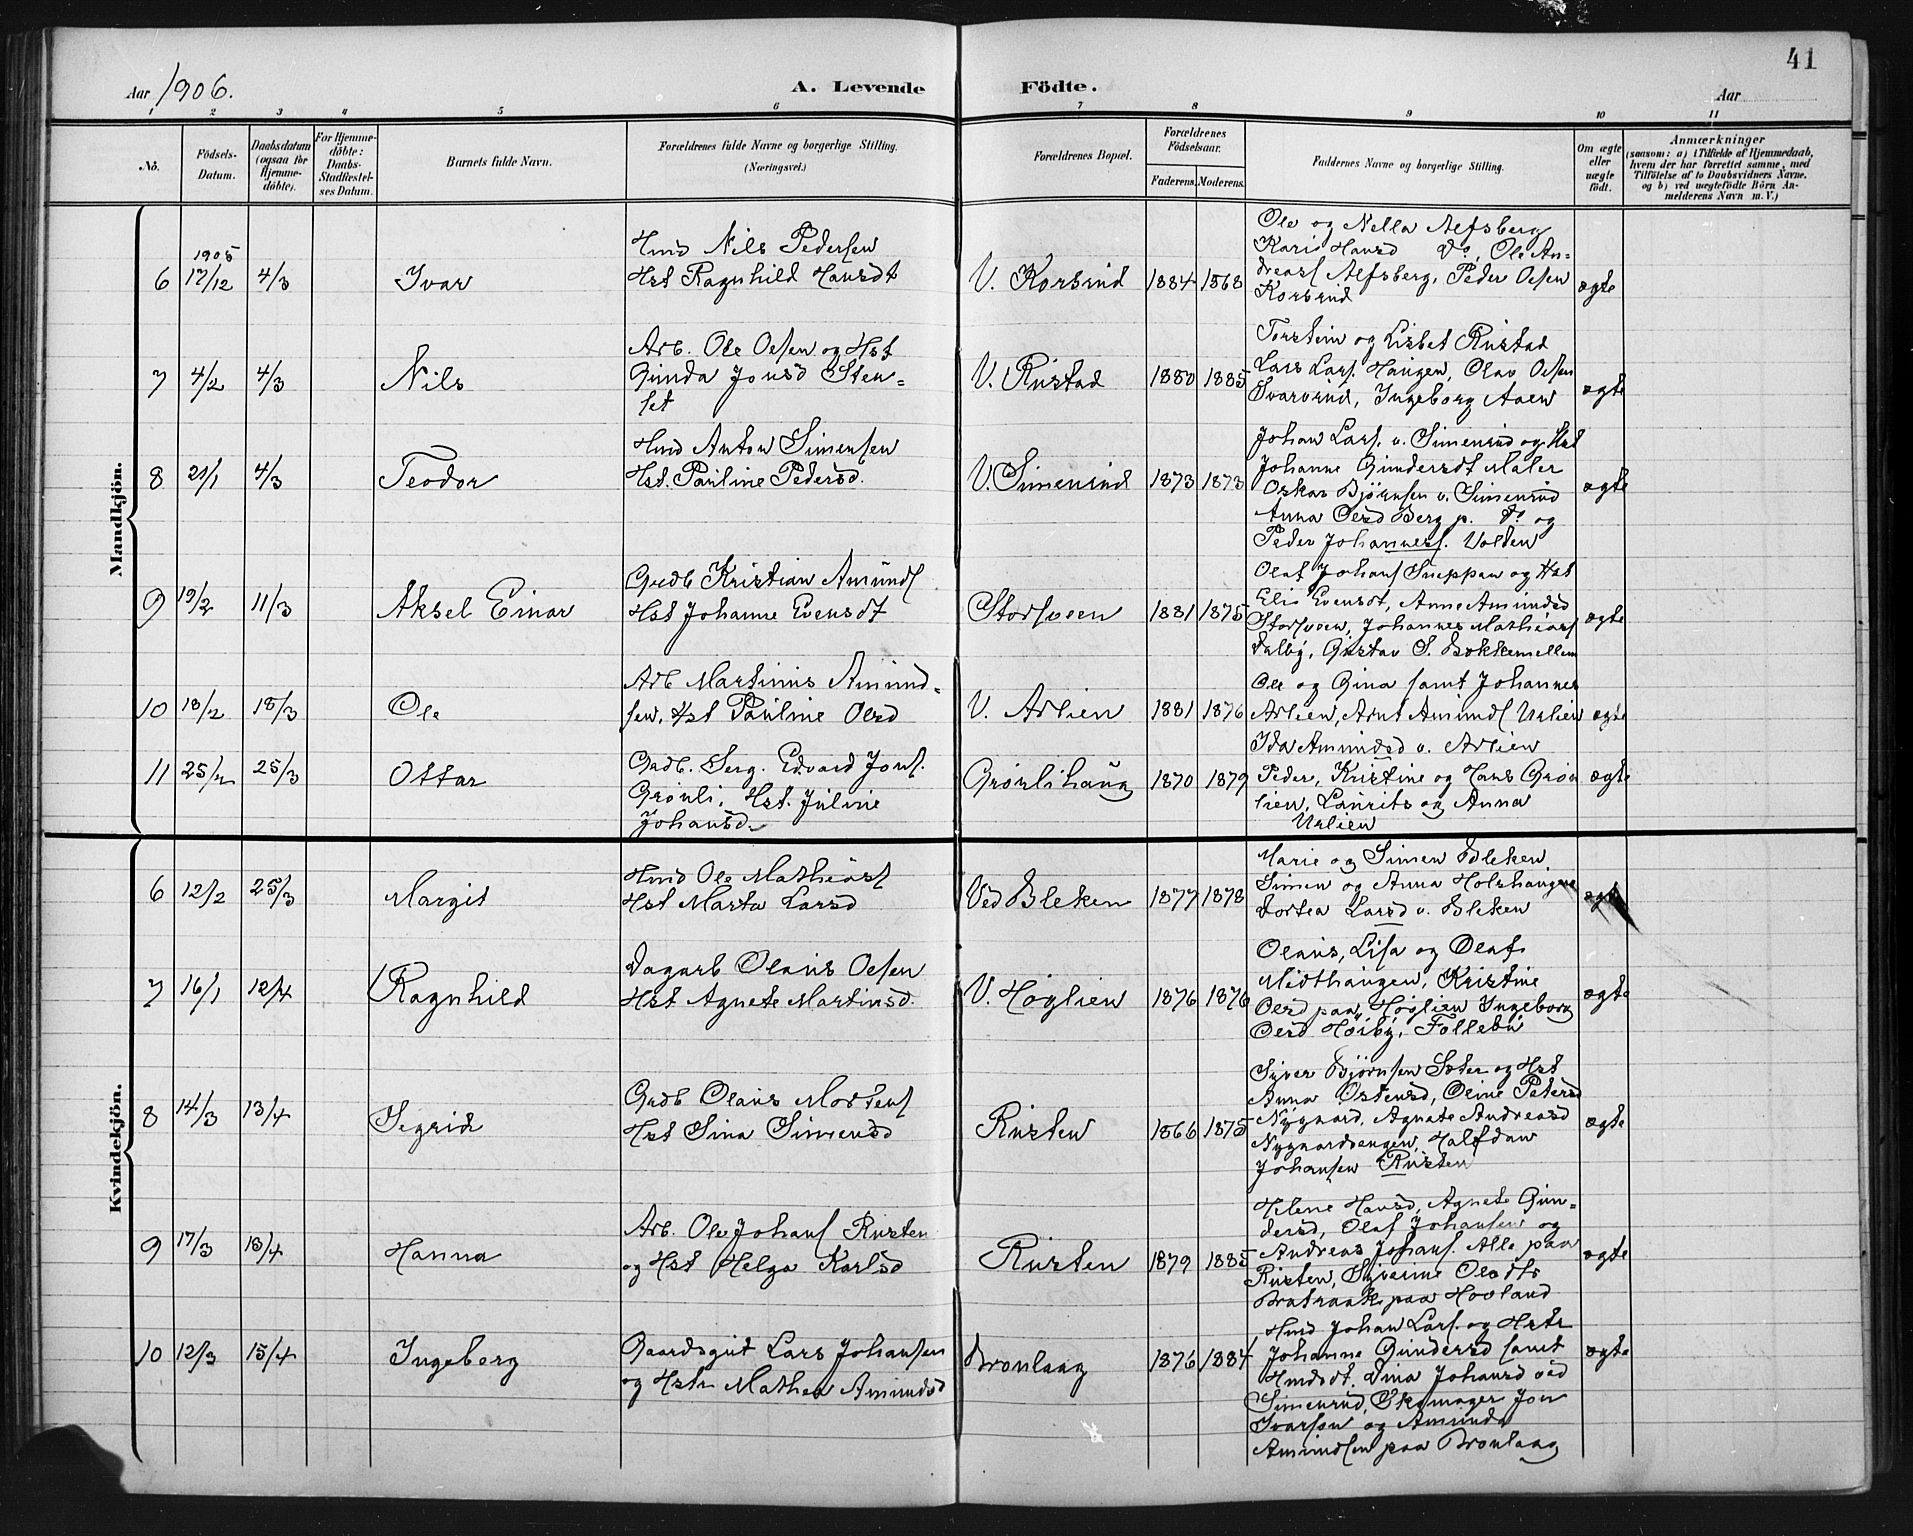 41
Aar 1906.
A. Levende Födte.
Aar
1 2 3 4 5 6 7 8 9 10 11
No.
Födsels-Datum.
Daabsdatum (ogsaa for Hjemmedöbte).
For Hjemmedöbte: Daabs-Stadfæstelses Datum.
Barnets fulde Navn.
Forældrenes fulde Navne og borgerlige Stilling. (Næringsvei.)
Forældrenes Bopæl.
Forældrenes Födselsaar.
Faderens. Moderens.
Faddernes Navne og borgerlige Stilling.
Om ægte eller uægte födt.
Anmærkninger
(saasom: a) i Tilfælde af Hjemmedaab, hvem der har forrettet samme, med Tilföielse af to Daabsvidners Navne, og b) ved uægtefödte Börn Anmelderens Navn m. V.)
Mandkjön.
6 1905 17/12 4/3 Ivar
Hmd Nils Pedersen
Hst Ragnhild Hansdt
V. Korsrud 1884 1868
Ole og Nella Alfsberg
Kari Hansd do, Ole An=
dreas Alfsberg, Peder Olsen
Korsrud
ægte
7 4/2 4/3 Nils
Arb. Ole Olsen og Hst
Gunda Jonsd Sten=
set
V. Rustad 1880 1885
Torstein og Lisbet Rustad
Lars Lars. Haugen, Olav Olsen
Svarverud, Ingeborg Aaen
ægte
8 21/1 4/3 Teodor
Hmd Anton Simensen
Hst. Pauline Pedersd.
V. Simenrud 1873 1873
Johan Lars. v. Simenrud og Hst
Johanne Gundersdt Maler
Oskar Bjørnsen v. Simenrud
Anna Olsd Berg p. do og
Peder Johannes. Volden
ægte
9 19/2 11/3 Aksel Einar
Grdb Kristian Amunds
Hst Johanne Evensdt
Storsveen 1881 1875
Olaf Johans Sneppen og Hst
Elis Evensdt, Anne Amundsd
Storsveen, Johannes Mathias
Dalby, Gustav S. Bokkemellem
ægte
10 18/2 18/3 Ole
Arb Martinus Amund=
sen, Hst Pauline Olsd
V. Arlien 1881 1876
Ole og Gina samt Johannes
Arlien, Arnt Amunds Urlien
Ida Amundsd v. Arlien
ægte
11 25/2 25/3 Ottar
Grdb. Serg. Edvard Jons.
Grønli, Hst. Juline
Johansd.
Grønlihaug 1870 1879
Peder, Kristine og Hans Grøn
lien, Laurits og Anna
Urlien
ægte
Kvindekjön.
6 12/2 25/3 Margit
Hmd Ole Mathias
Hst Marta Larsd
Ved Bleken 1877 1878
Marie og Simen Bleken
Simen og Anna Holshaugen
Dortea Larsd v. Bleken
ægte
7 16/1 12/4 Ragnhild
Dagarb Olaus Olsen
Hst Agnete Martinsd.
V. Høglien 1876 1876
Olaus, Lisa og Olaf
Midthaugen, Kristine
Olsd paa Høglien Ingeborg
Olsd Høiby, Follebu
ægte
8 14/3 13/4 Sigrid
Grdb Olaus Mortens
Hst Sina Simensd
Rusten 1866 1875
Syver Bjørnsen Sæter og Hst
Anna Østensd, Oline Petersd
Nygaard, Agnete Andreasd
Nygaardsengen, Halfdan
Johansen Rusten
ægte
9 17/3 13/4 Hanna
Arb. Ole Johans Rusten
og Hst Helga Karlsd
Rusten 1879 1885
Helene Hansd, Agnete Gun=
dersd, Olaf Johansen og
Andreas Johans. Alle paa
Rusten, Syverine Olsdtr
Bratraak paa Hovland
ægte
10 12/3 15/4 Ingeborg
Gaardsgut Lars Johansen
og Hstr Mathea Amundsd
Bronlaag 1876 1884
Hmd Johan Lars. og Hstr
Johanne Gundersd samt
Hmdsdt. Dina Johansd ved
Simenrud, Skomager Jon
Ivarsen og Amunda
Amundsen paa Bronlaag
ægte